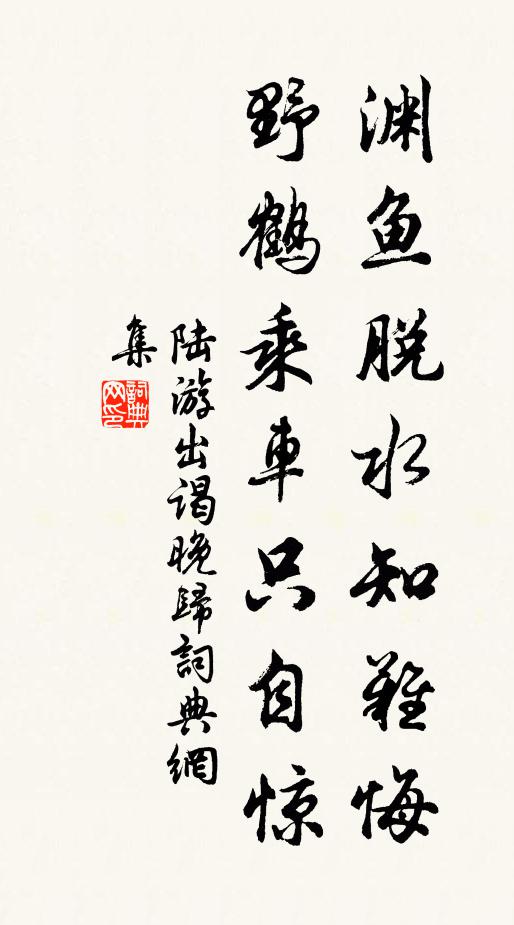 渊鱼脱水知难悔
野鹤乘车只自惊
陆游出谒晚归詞典網
集
詞典网印